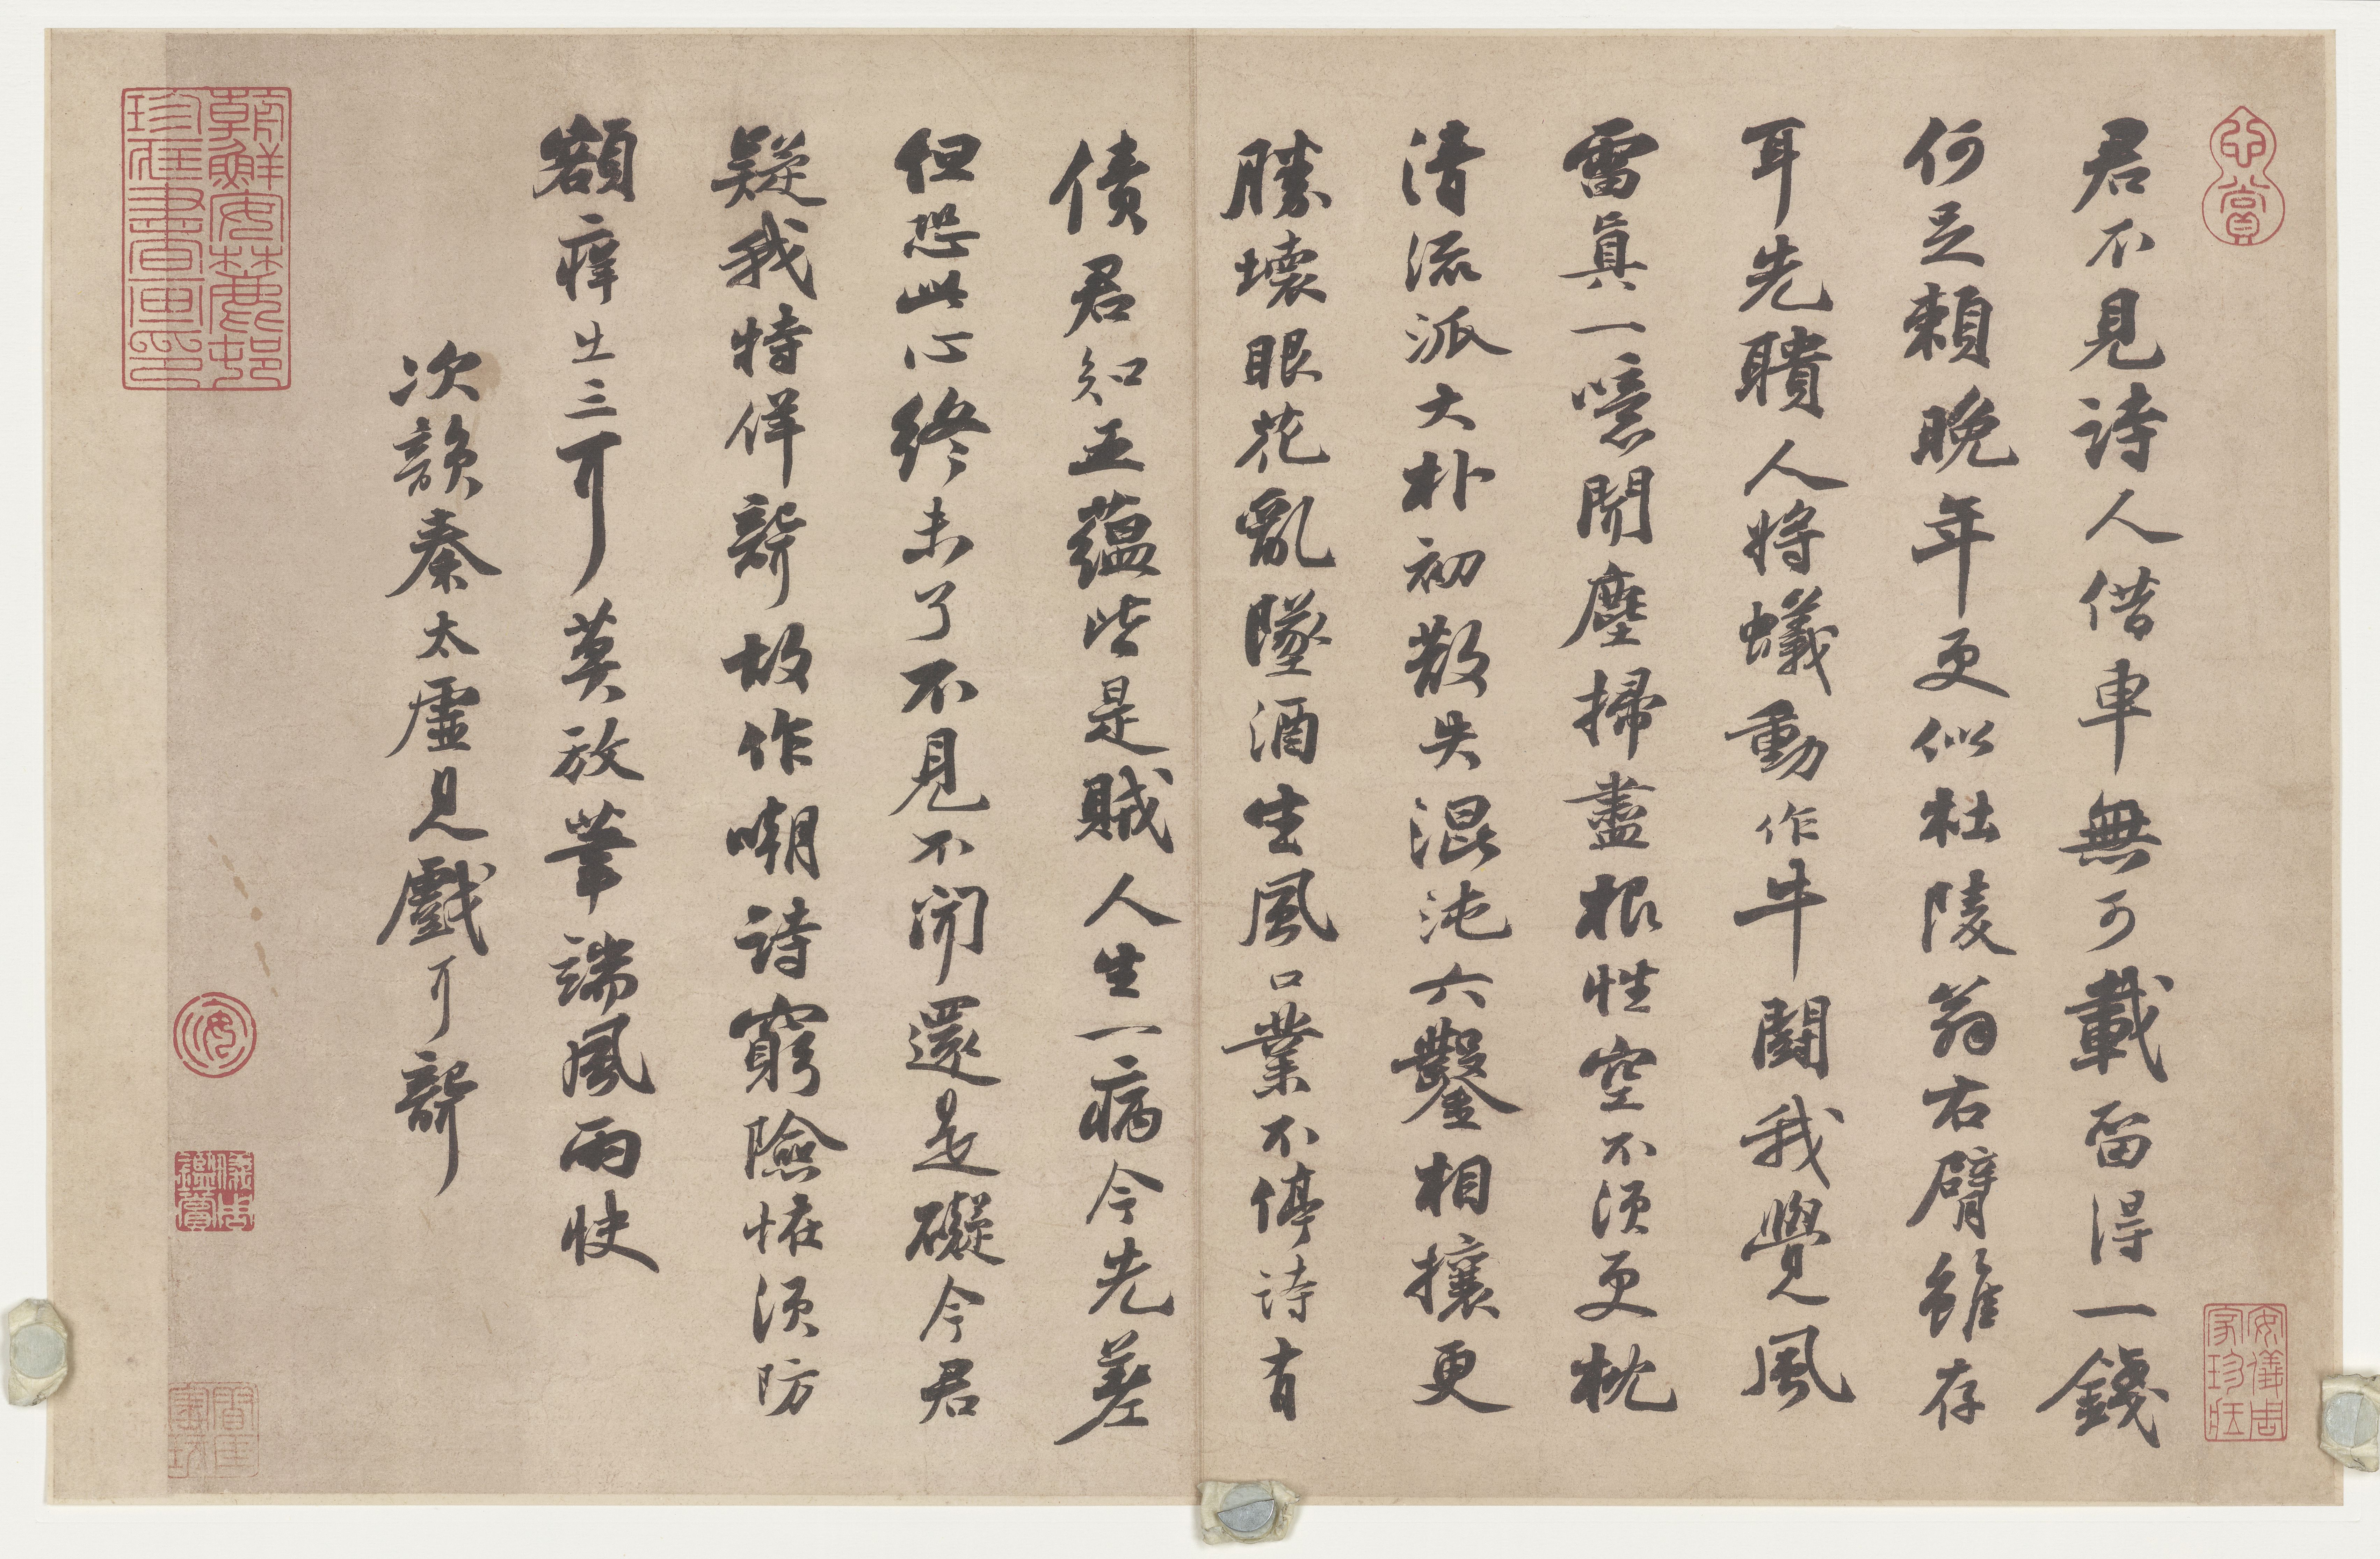 君不見詩人借車無可載留得一錢
何足賴晚年更似杜陵翁右臂雖存
耳先聵人將蟻動作牛鬪我覺風
雷真一噫聞塵掃盡根性空不須更枕
清流派大朴初散失混沌六鑿相攘更
勝壞眼花亂墜酒生風口業不停詩有
債君知五蘊皆是賊人生一病今先差
但恐此心終未了不見不聞還是礙今君
疑我特佯聾故作嘲詩窮險怪須防
額癢出三耳莫放筆端風雨快
次韻秦太虛見戲耳聾
朝鮮安麓邨珍藏書畫印
心賞
安儀周家珍藏
儀周鑑賞